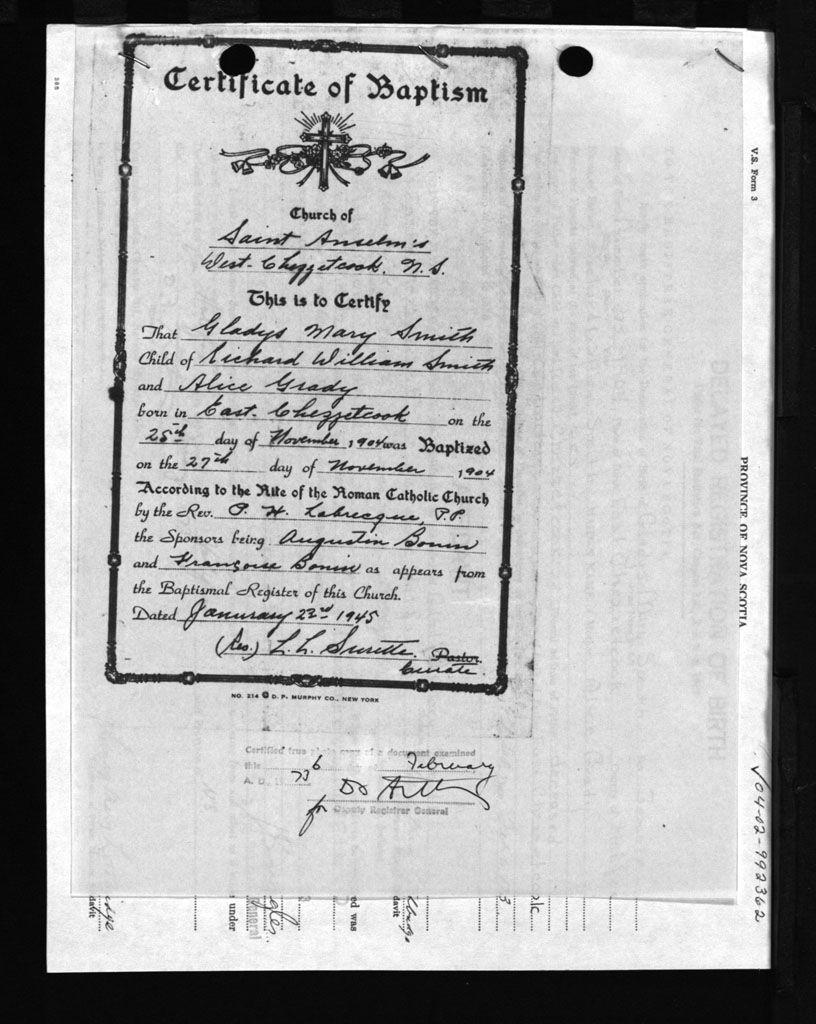 Certificate of Baptism
Church of
Saint Anselm's
West Chezzetcook, N.S.
This is to Certify
That Gladys Mary Smith
Child of Richard William Smith
and Alice Grady
born in East Chezzetcook on the
25th day of November, 1904 was Baptized
on the 27th day of November, 1904
According to the Rite of the Roman Catholic Church
by the Rev. P. H. Labrecque, P.P.
the Sponsors being Augustin Bonin
and Françoise Bonin as appears from
the Baptismal Register of this Church.
Dated Janurary 23rd 1945
(Rev.) L. L. Surette Pastor.
Curate.
NO. 214 © D. P. MURPHY CO., NEW YORK
Certified true photo copy of a document examined
this 6 February
A. D., 1973
for Deputy Registrar General
V.S. Form 3
PROVINCE OF NOVA SCOTIA
REGISTRATION OF BIRTH
√04-02-992362
davit
under
General
3
ed was
davit
3